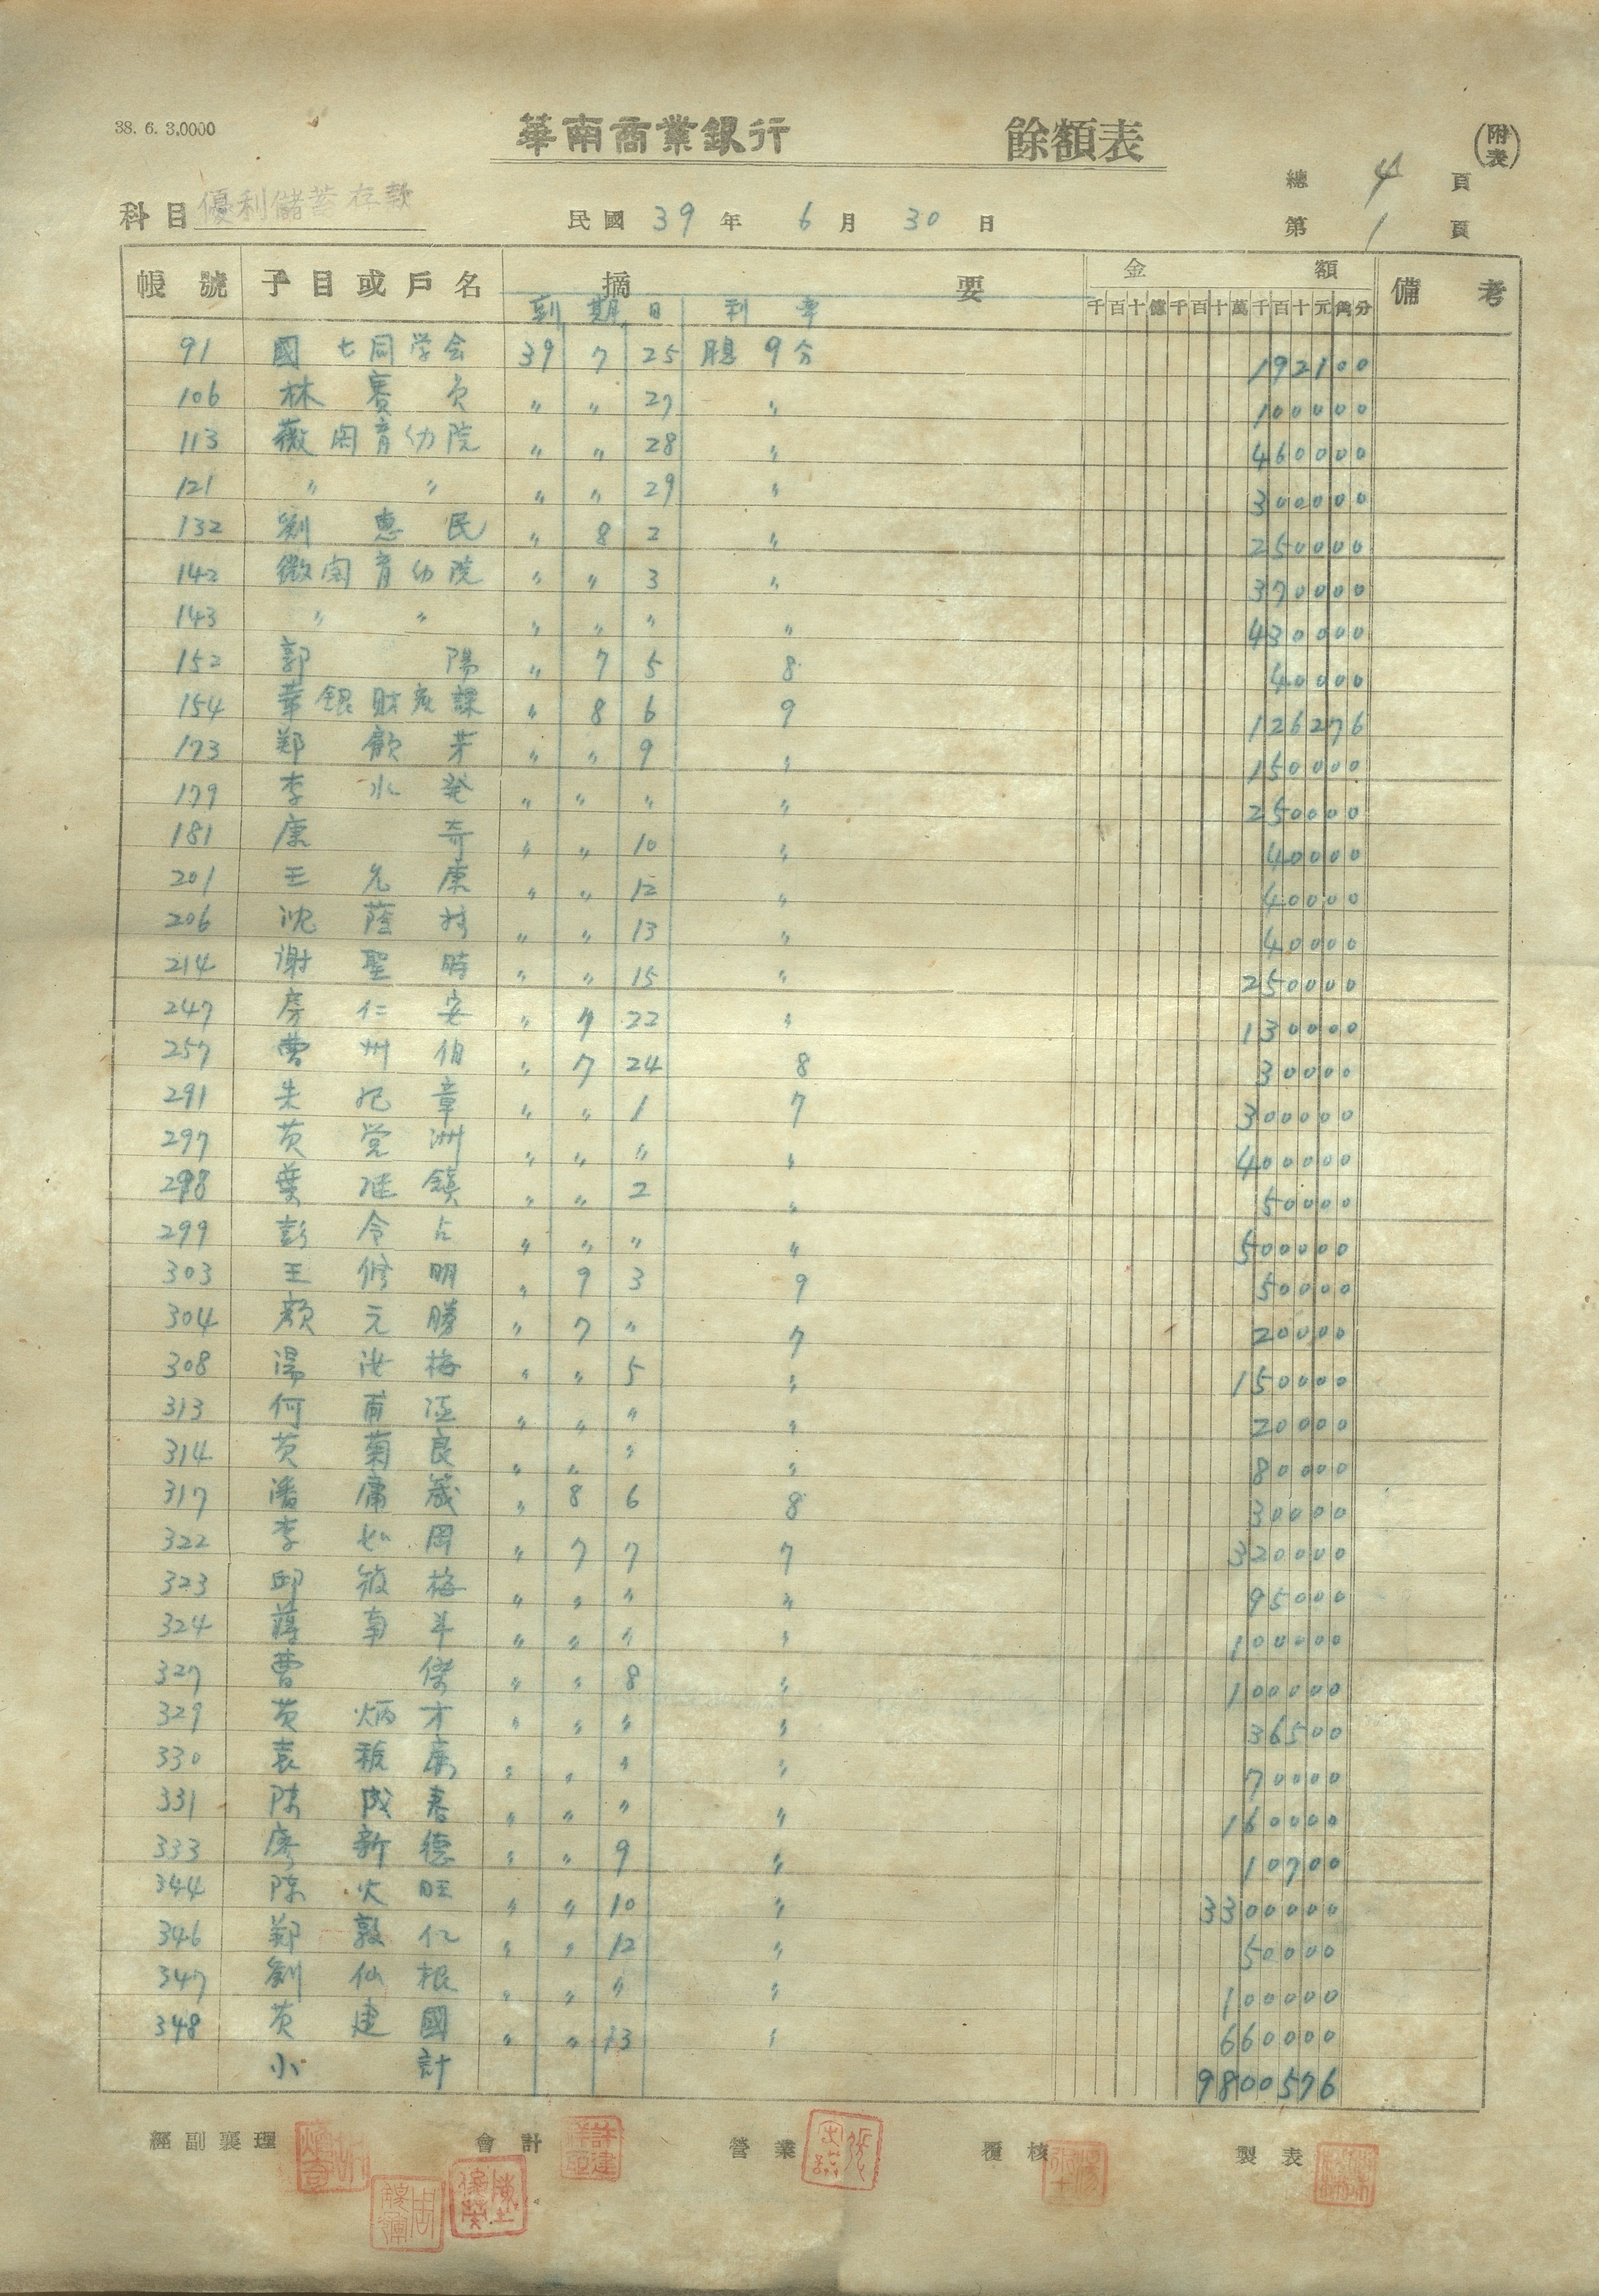 38. 6. 3,0000
華南商業銀行 餘額表 (附表)
總 4 頁
科目 優利儲蓄存款 民國 39 年 6 月 30 日 第 1 頁
帳號 子目或戶名 摘要 金額 備考
到期日 利率 千百十億千百十萬千百十元角分
91 國七同学会 39 7 25 月息 9分 192100
106 林 〃 〃 27 〃 100000
113 薇閣育幼院 〃 〃 28 〃 460000
121 〃 〃 〃 〃 29 〃 300000
132 劉惠民 〃 8 2 〃 250000
142 薇閣育幼院 〃 〃 3 〃 370000
143 〃 〃 〃 〃 〃 〃 430000
152 郭陽 〃 7 5 8 40000
154 華銀財産課 〃 8 6 9 126276
173 鄭 〃 〃 9 〃 150000
179 李水発 〃 〃 〃 〃 250000
181 康奇 〃 〃 10 〃 40000
201 王允康 〃 〃 12 〃 40000
206 沈蔭 〃 〃 13 〃 40000
214 謝聖時 〃 〃 15 〃 250000
247 房仁安 〃 〃 22 〃 130000
257 曹州伯 〃 7 24 8 30000
291 朱章 〃 〃 1 7 300000
297 黄党洲 〃 〃 〃 〃 400000
298 葉鎮 〃 〃 2 〃 50000
299 彭令占 〃 〃 〃 〃 500000
303 王修明 〃 9 3 9 50000
304 顏元勝 〃 7 〃 7 20000
308 湯汝梅 〃 〃 5 〃 150000
313 何甫 〃 〃 〃 〃 20000
314 黄菊良 〃 〃 〃 〃 80000
317 潘庸箴 〃 8 6 8 30000
322 李如岡 〃 7 7 7 320000
323 邱筱梅 〃 〃 〃 〃 95000
324 蔣南斗 〃 〃 〃 〃 100000
327 曹傑 〃 〃 8 〃 100000
329 黄炳才 〃 〃 〃 〃 36500
330 袁 〃 〃 〃 〃 70000
331 陳成春 〃 〃 〃 〃 160000
333 廖新德 〃 〃 9 〃 10700
344 陳火旺 〃 〃 10 〃 3300000
346 鄭敦仁 〃 〃 12 〃 50000
347 劉仙根 〃 〃 〃 〃 100000
348 黄建國 〃 〃 13 〃 660000
小計 9800576
經副襄理 會計 營業 覆核 製表